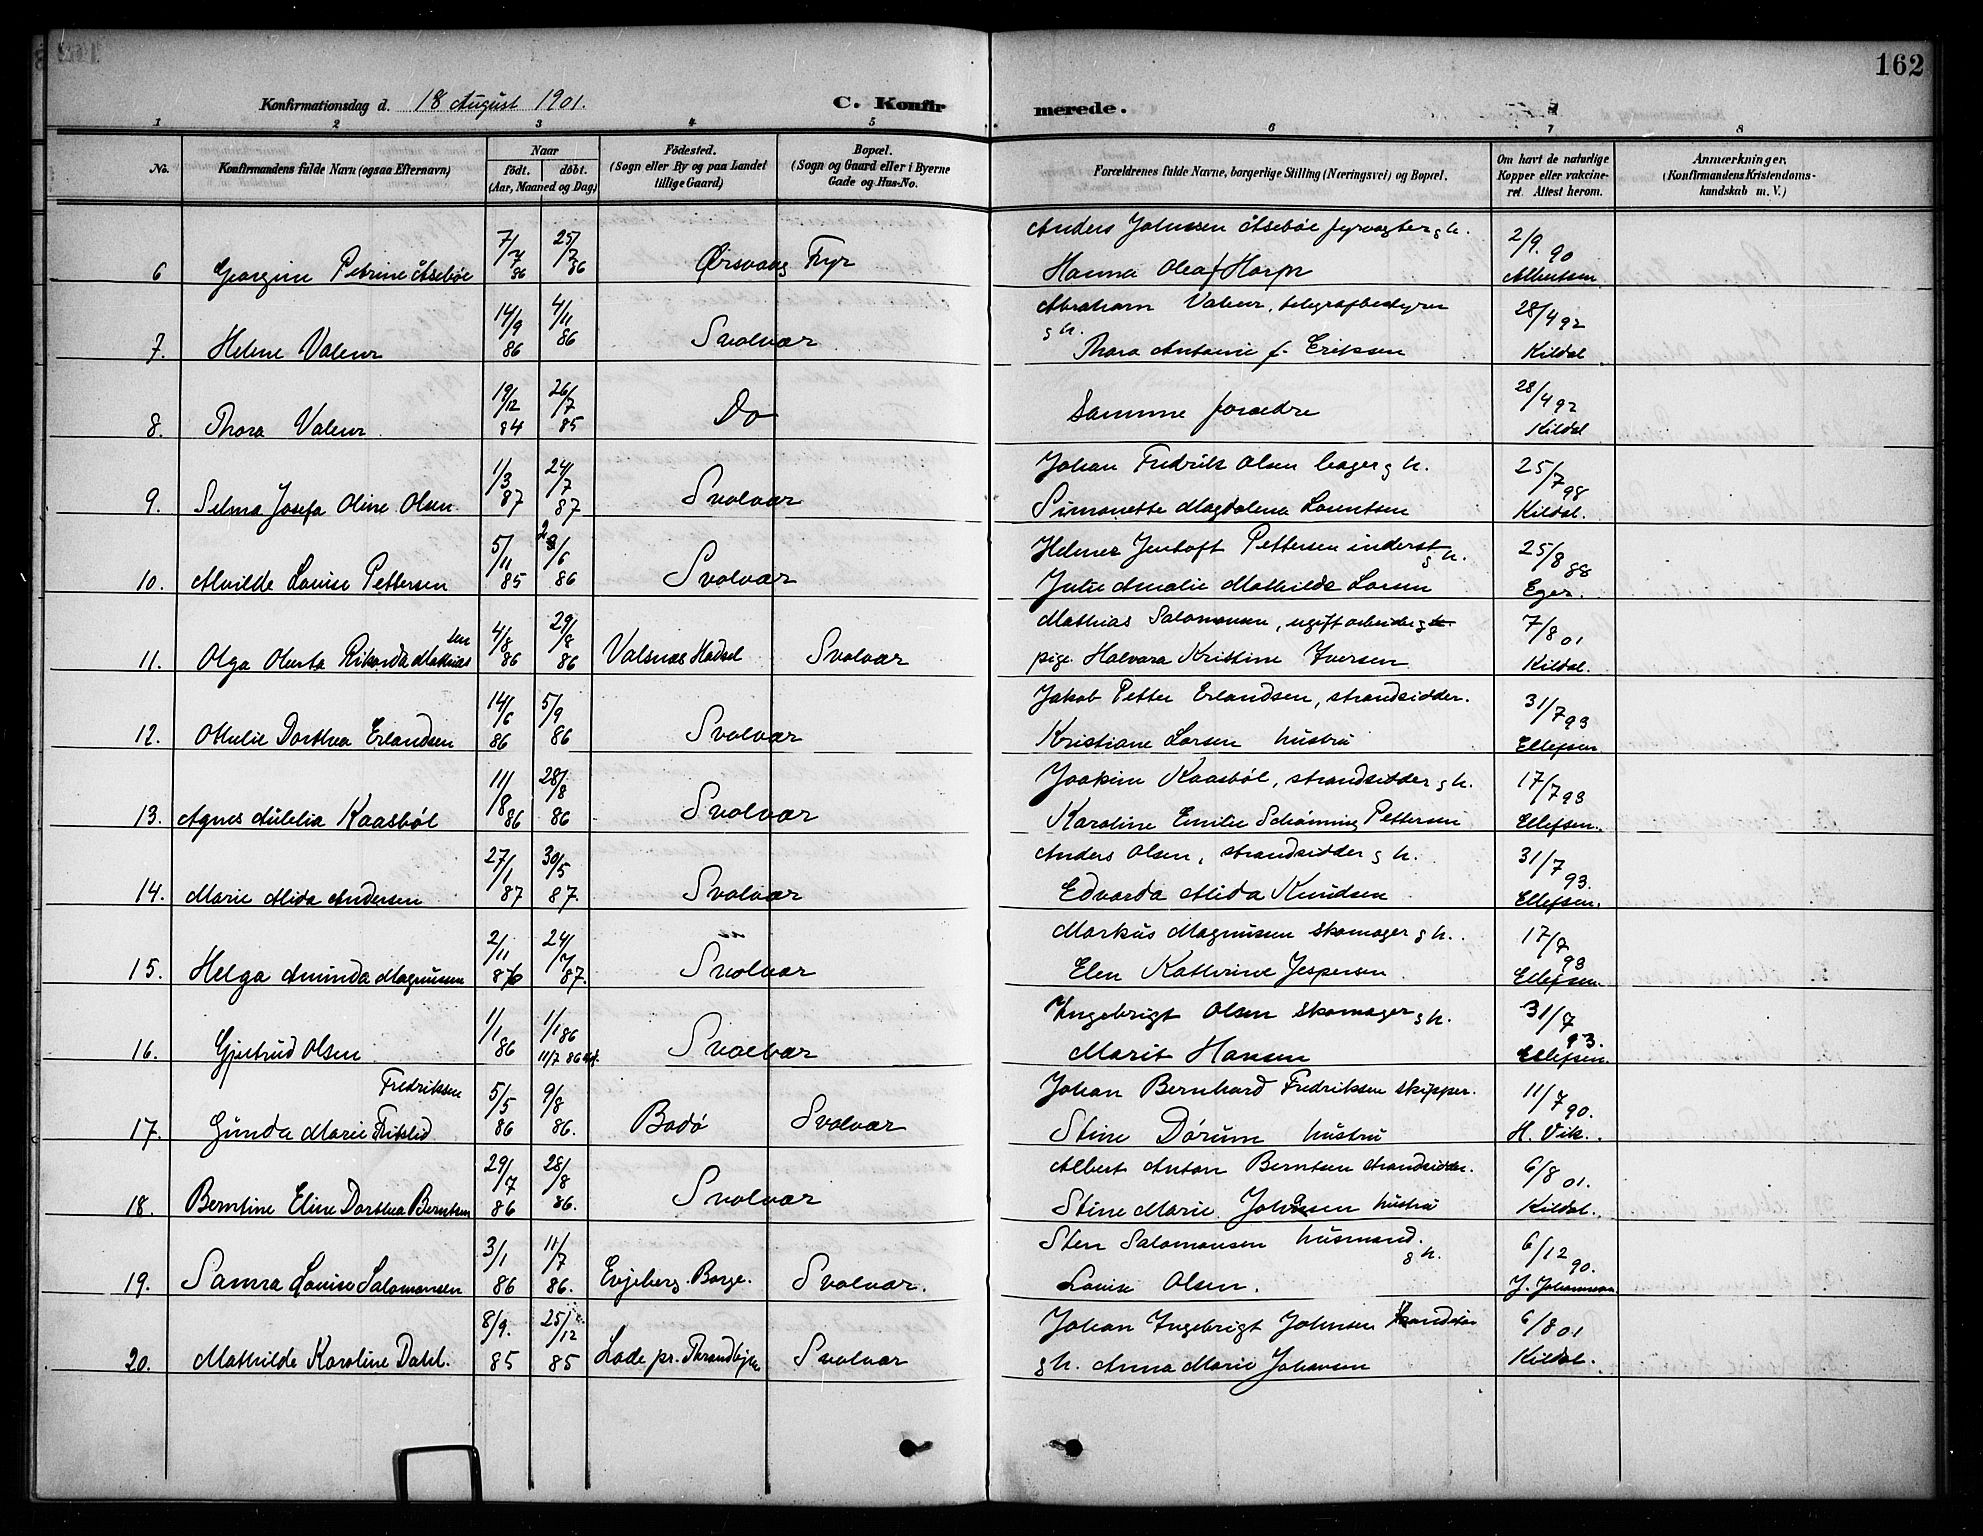 162
Konfirmationsdag d. 18 August 1901. C. Konfirmerede.
1 2 3 4 5 6 7 8
No. Konfirmandens fulde Navn (ogsaa Efternavn) Naar født. døbt. (Aar, Maaned og Dag) Fødested. (Sogn eller By og paa Landet tillige Gaard) Bopæl. (Sogn og Gaard eller i Byerne Gade og Hus-No.) Forældrenes fulde Navne, borgerlige Stilling (Næringsvei) og Bopæl. Om havt de naturlige Kopper eller vakcineret. Attest herom. Anmærkninger. (Konfirmandens Kristendomskundskab m. V.)
Anders Johnssen Åsebøe fyrvogter g h. 2/9. 90
6 Georgine Petrine Åsebøe 7/7 86 25/7 86 Ørsvaag Fyr Hanna Olea f Horpr Albertsen
Abraham Valeur, telegrafbestyrer g h. 28/4 92
7. Helene Valeur 14/9 86 4/11 86 Svolvær Thora Antonie f. Eriksen Kildal
8. Thora Valeur 19/12 84 26/7 85 Do Samme foræedre 28/4 92 Kildal
Johan Fredrik Olsen bager g h. 25/7 98
9. Selma Josefa Oline Olsen 1/3 87 24/7 87 Svolvær Simonette Magdalena Lorentsen Kildal.
Helmer Jentoft Pettersen inderst g h. 25/8 88
10. Alvilde Louise Pettersen 5/11 85 /6 86 Svolvær Julie Amalie Mathilde Larsen Eger.
Mathias Salomonsen, ugift arbeider g h. 7/8 01
11. Olga Oluta Rikarda Mathiassen 4/8 86 29/8 86 Valsnæs Hadsel Svolvær pige Halvara Kristine Iversen Kildal.
Jakob Petter Erlandsen, strandsidder. 31/7 93
12. Othelie Dorthea Erlandsen 14/6 86 5/9 86 Svolvær Kristiane Larsen hustru Ellefsen
Joakim Kaasbøl, strandsidder g h. 17/7 93
13. Agnes Aulelia Kaasbøl 11/8 86 28/8 86 Svolvær Karoline Emilie Schønning Pettersen Ellefsen.
Anders Olsen, strandsidder g h. 31/7 93.
14. Marie Alida Andersen 27/1 87 30/5 87. Svolvær Edvarda Alida Knudsen Ellefsen.
Markus Magnusen skomager g h. 17/7 93
15. Helga Aminda Magnusen 2/11 86 24/7 87. Svolvær Elen Kathrine Jespersen Ellefsen
Ingebrigt Olsen skomager g h. 31/7 93.
16. Gjertrud Olsen. 1/1 86 1/1 86 11/7 86 Svolvær Marit Hansen Ellefsen
Johan Bernhard Fredriksen skipper. 11/7 90.
17. Gunda Marie Fritslid Fredriksen 5/5 86 9/8 86. Bodø Svolvær Stine Dørum hustru H. Vik.
Albert Anton Berntsen strandsidder. 6/8 01.
18. Berntine Eline Dorthea Berntsen 29/7 86 28/8 86. Svolvær Stine Marie Johnsen hustru Kildal.
Sten Salomonsen husmand. g h. 6/12 90.
19. Sanna Louise Salomonsen 3/1 86 11/7 86. Evjeberg. Borge. Svolvær. Louise Olsen. J. Johannesen
Johan Ingebrigt Johnsen 6/8 01
20. Mathilde Karoline Dahl. 8/9. 85 25/12 85 Lade pr. Throndhjem Svolvær g h. Anna Marie Johansen Kildal.